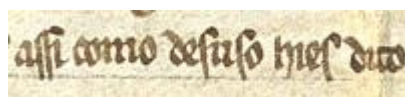 assi como desuso hies dito